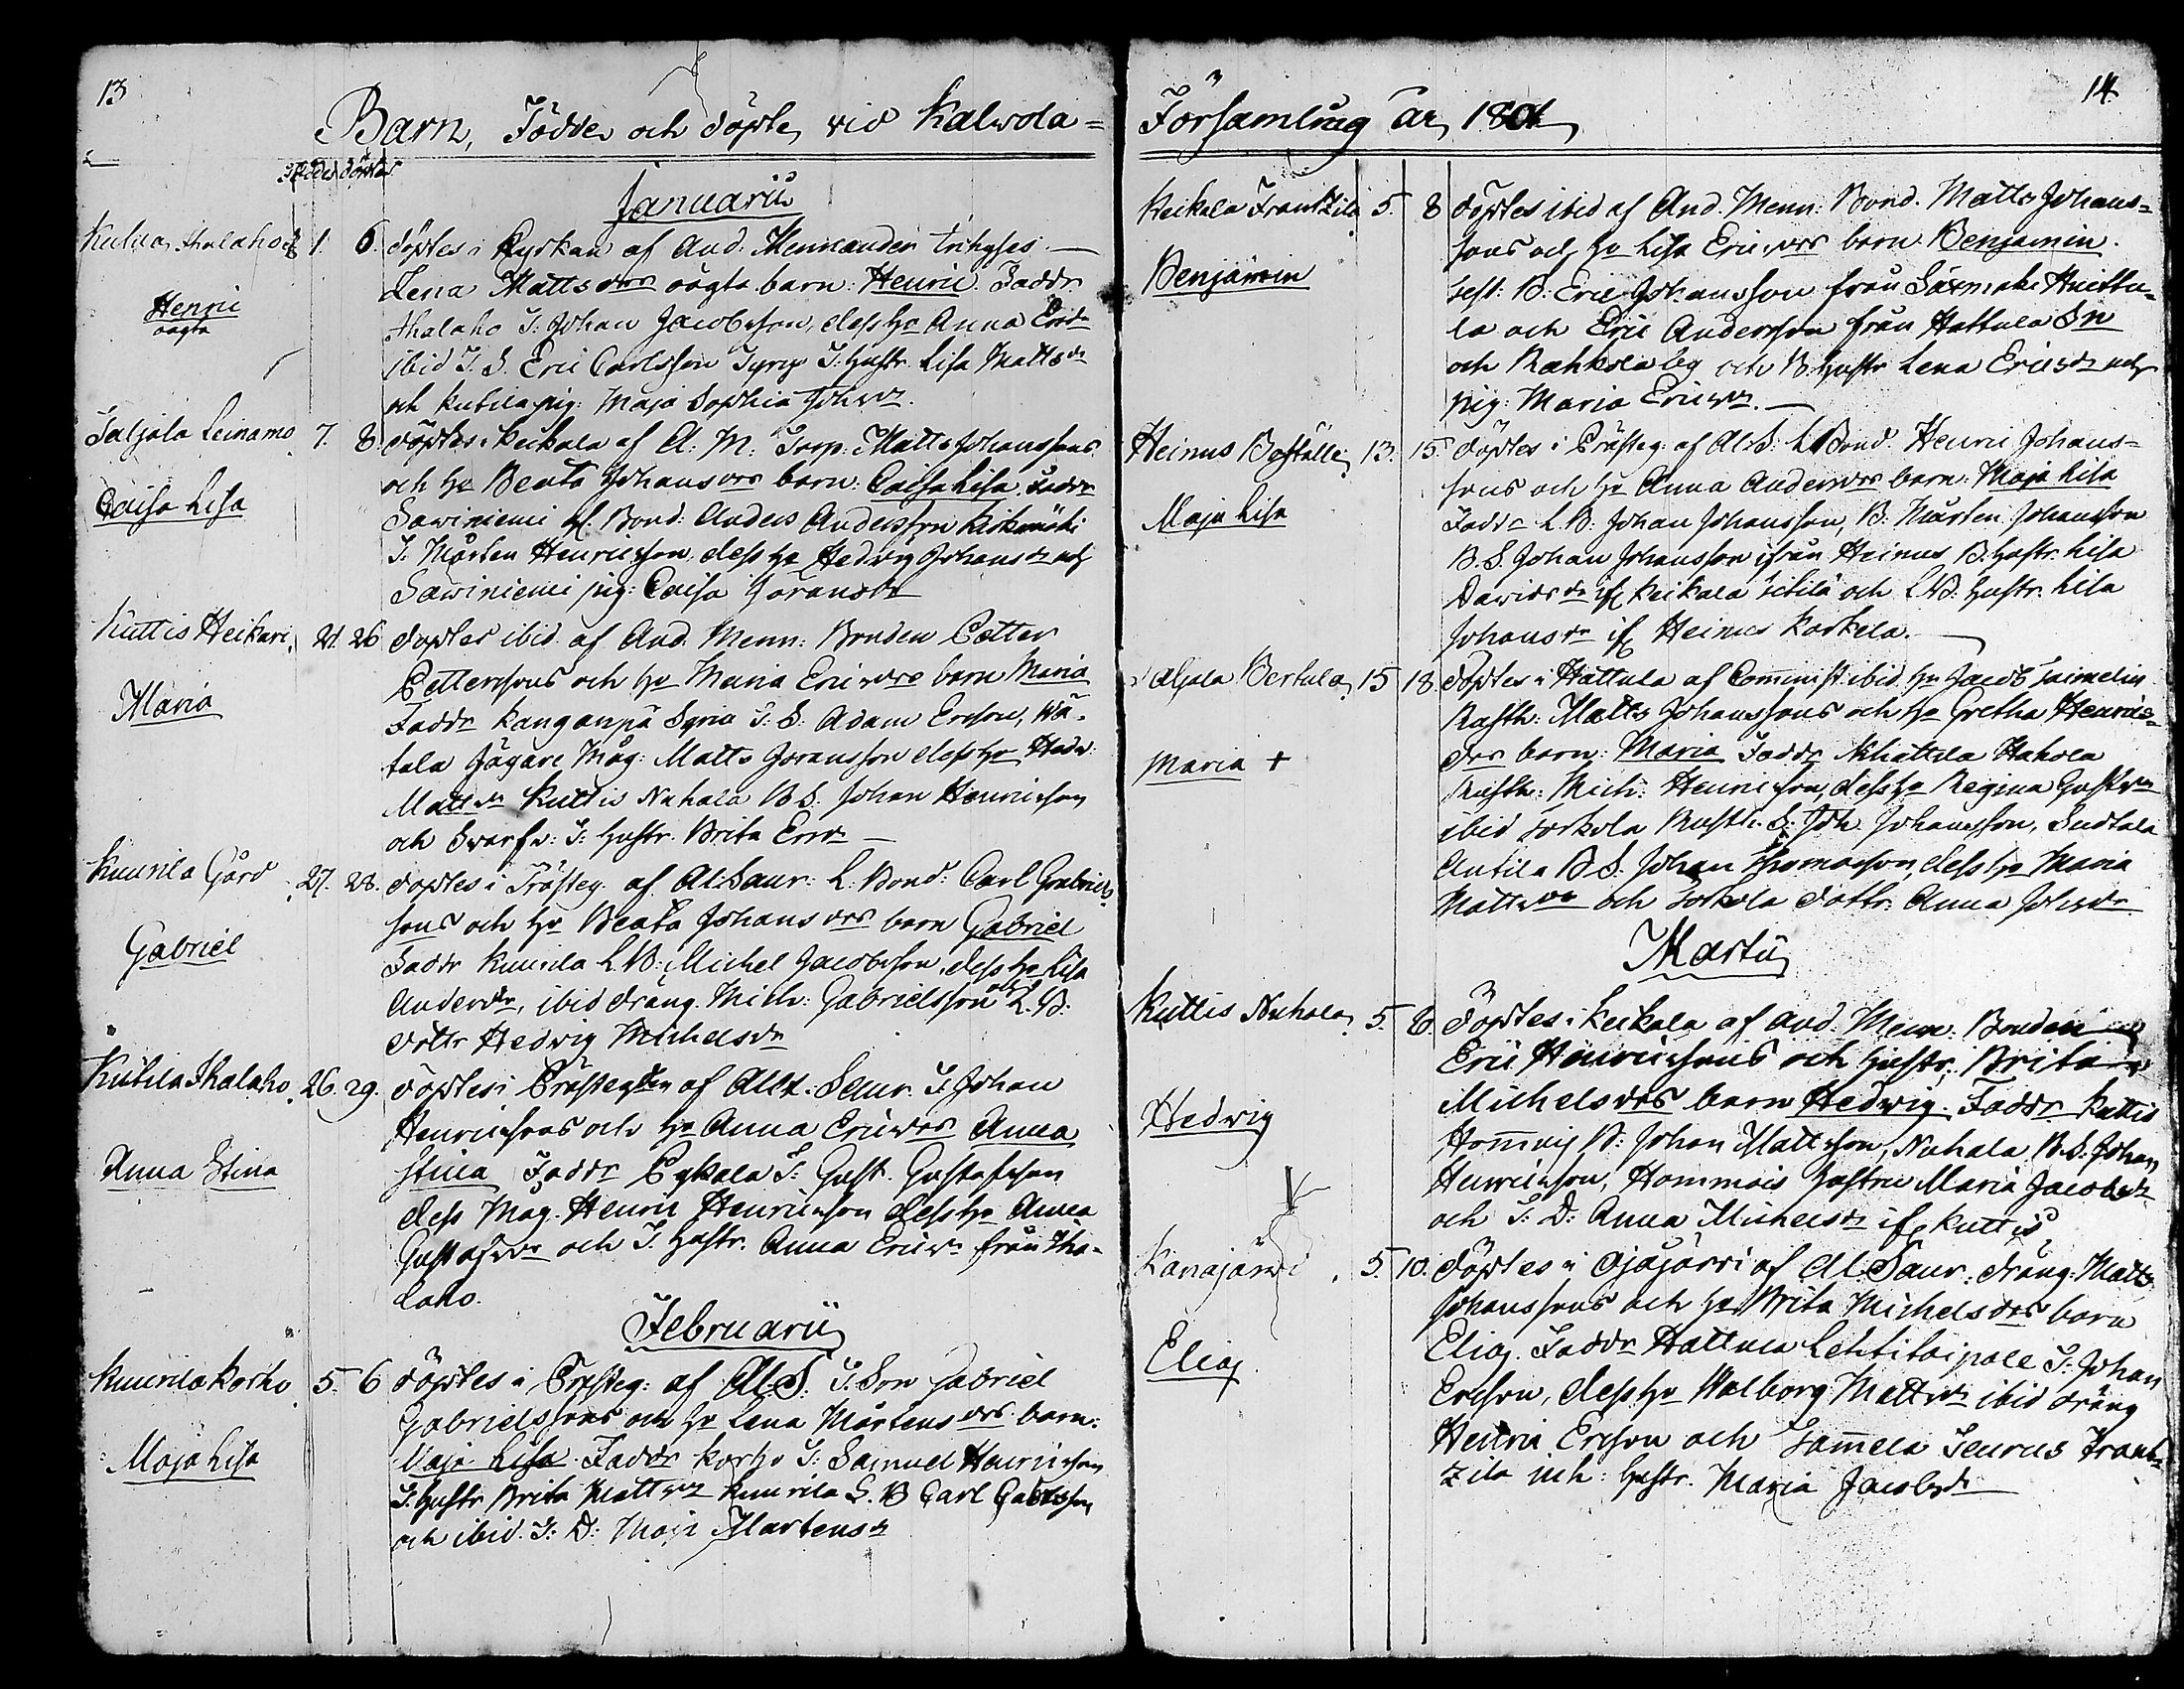 13
Barn, Födde och döpte, vid Kalvola=
Födde döpte
Januarii
Henric
oägta
1. 6. döptes i Kyrkan af And. Mennander Inhyses
Lena Mattsdrs oägta barn: Henric. Faddr
Ihalaho T: Johan Jacobsson, dess ho Anna Ersdr
ibid T. S. Eric Carlsson T: hustr. Lisa Mattsdr
och Kutila pig: Maja Sophia Johsdr.
Taljala Leinamo 7. 8. döptes i Keikala af A: M: Torp: Matts Johanssons
och ho Beata Johansdrs barn: Caisa Lisa. Faddr
Caisa Lisa
Sawiniemi Bond: Anders Andersson Kiskomäki
T: Mårten Henricsson, dess ho Hedvig Johansdr och
Sawiniemi pig: Caisa Göransdr
Kuttis Heikari, 21. 26 döptes ibid af And. Menn: Bonden Petter
Pettersons och ho Maria Ericsdrs barn Maria
Maria
Faddr Kanganpä T: S: Adam Ersson, Wä-
tala Jägare Måg: Matts Göransson dess ho Hedv:
Mattsdr Kuttis Nuhala B S: Johan Henricsson
och T: hustr. Brita Ersdr
Kuurila Gård 27. 28. döptes i Prästeg. af Al: Saur: L: Bond: Carl Gabriels
sons och ho Beata Johansdrs barn Gabriel
Gabriel
Faddr Kuurila L B: Michel Jacobsson, dess ho Lisa
Andersdr, ibid dräng. Mich: Gabrielsson och L. B.
dottr Hedvig Michelsdr
Kutila Ihalaho 26. 29. döptes i Prästegden af Alex. Saur. T: Johan
Henricssons och ho Anna Ericsdrs Anna
Anna Stina
Stina Faddr Pykala T: Gust. Gustafsson
dess Måg. Henric Henricsson dess ho Anna
Gustafsdr och T. hustr. Anna Ericsdr från Iha-
laho.
Februarii
Kuurila Korho 5. 6 döptes i Prästeg: af Al S: T: Son Gabriel
Gabrielssons och ho Lena Mårtensdrs barn:
Maja Lisa
Maja Lisa. Faddr Korho T: Samuel Henricsson
T: hustr Brita Mattsdr Kuurila L. B Carl Gabrielsson
och ibid. T: D: Maja Martensdr
14
Församling år, 1801
Keikala Frantzila 5. 8 döptes ibid af And. Menn: Bond. Matts Johans=
sons och ho Lisa Ericsdrs barn Benjamin.
Benjamin
test: B: Eric Johansson från Säxmäki Huittu=
la och Eric Andersson från Hattula Sn
och Rahkoila by och B: hustr Lena Ericsdr och
pig: Maria Ericsdr.
Heinus Beställe, 13. 15. döptes i Prästeg. af Al S: L Bond. Henric Johans=
sons och ho Anna Andersdrs barn: Maja Lisa
Maja Lisa
Faddr L B: Johan Johansson, B: Mårten Johansson
B. S. Johan Johansson ifrån Heinus B. hustr. Lisa
Davidsdr if Keikala och L B: hustr. Lisa
Johansdr if Heinus Korkela.
Taljala Bertula, 15 18 döptes i Hattula af Comminist. ibid Hr Jacob
Rusth: Matts Johanssons och ho Gretha Henrics=
drs barn: Maria Faddr Hakola
Maria +
Rusth: Mich: Henricsson, dess ho Regina Gustfsdr
ibid Sorkola Rusth. S: Joh. Johansson, Suotala
Antila B S: Johan Thomasson, dess ho Maria
Mattsdr och Sorkola dottr. Anna Johsdr
Martii
Kuttis Nuhala, 5. 8. döptes i Keikala af And. Menn. Bonden
Eric Henricssons och hustr. Brita
Michelsdrs barn Hedwig. Faddr Kuttis
Hedwig
Hommais B: Johan Mattsson, Nuhala B. S. Johan
Henricsson, Hommais hustru Maria Jacobsdr
och T: D: Anna Michelsdr if Kuttis
Kanajärwi 5. 10. döptes i Ajajärvi af Al Saur: dräng. Matts
Johanssons och ho Brita Michelsdrs barn
Elias.
Elias. Faddr Hattula Lehtitaipale T: Johan
Ersson, dess ho Walborg Mattsdr ibid dräng
Henric Ersson och
zila inh: hustr. Maria Jacobsdr